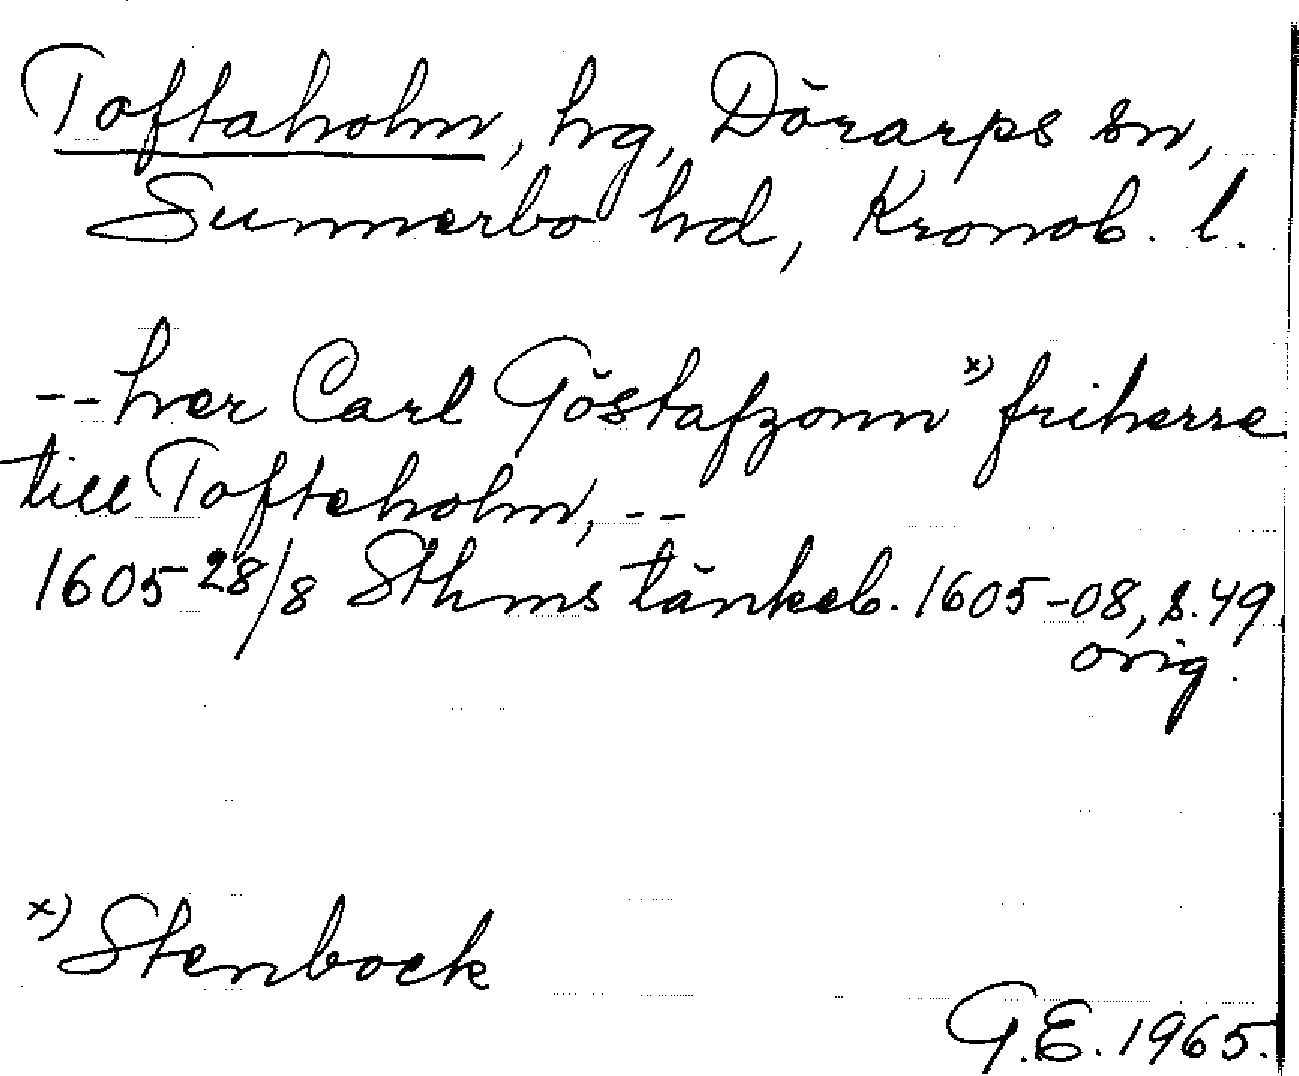 Toftaholm, hg, Dörarps sn,
Sunnerbo hd, Kronob. l.
-- her Carl Göstafzonn x) friherre
till Tofteholm, --
1605 28/8 Sthms tänkeb. 1605-08, s. 49
orig.
x) Stenbock
G.E. 1965.